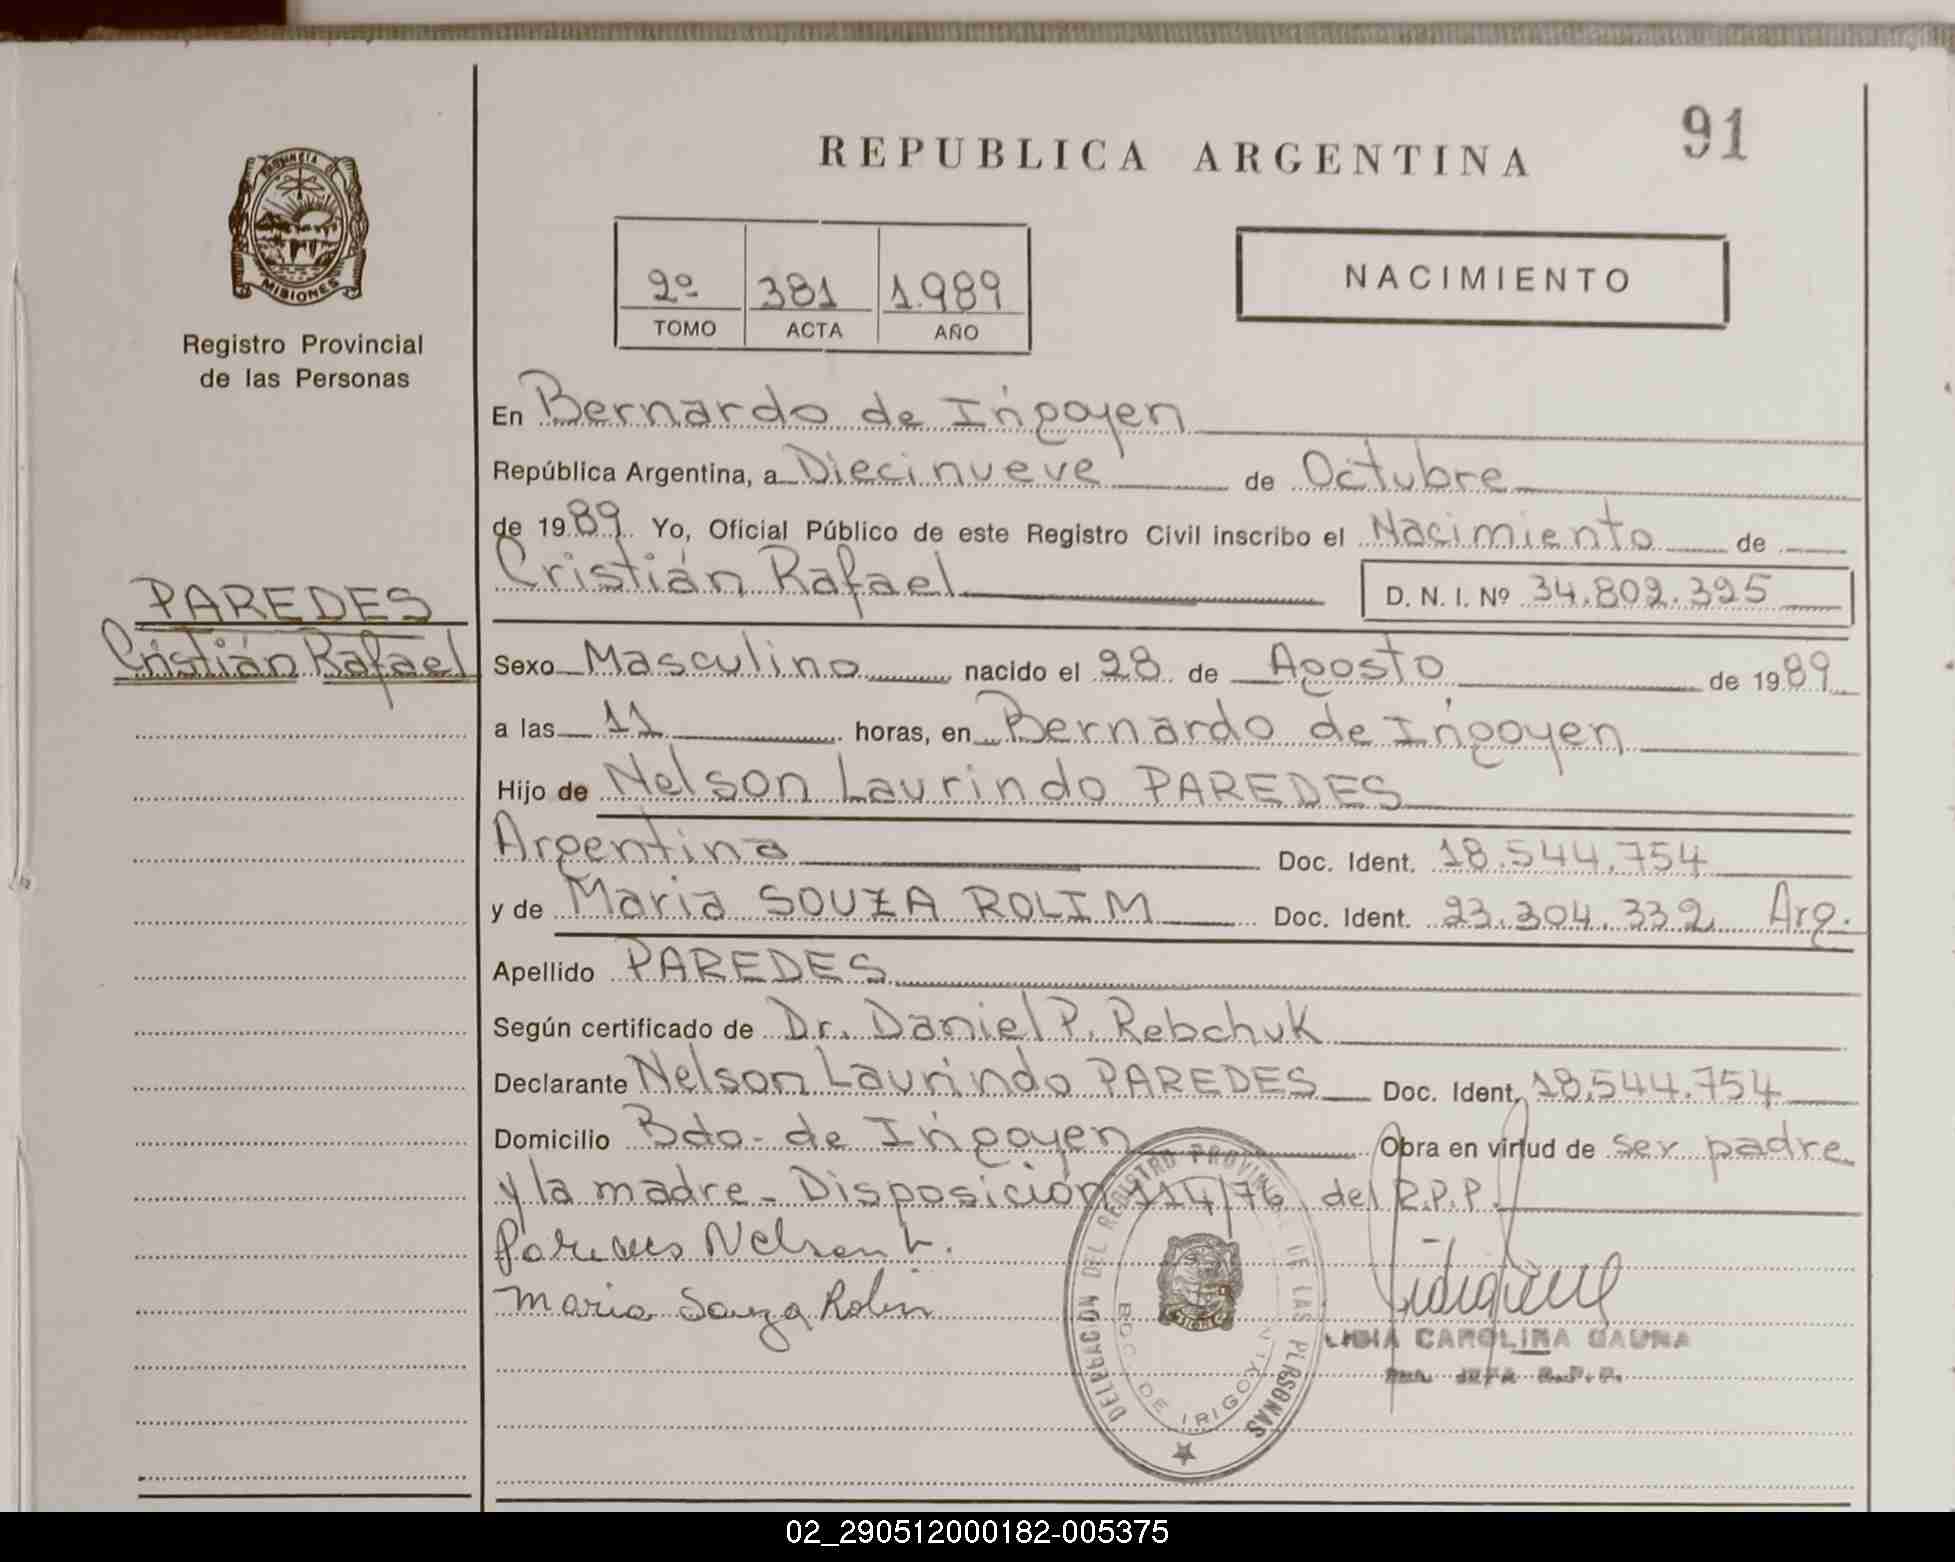 REPUBLICA ARGENTINA
91
PROVINCIA DE
MISIONES
Registro Provincial
de las Personas
2º 381 1.989
TOMO ACTA AÑO
NACIMIENTO
En Bernardo de Irigoyen
República Argentina, a Diecinueve de Octubre
de 1989 Yo, Oficial Público de este Registro Civil inscribo el Nacimiento de
Cristián Rafael D. N. I. Nº 34.802.395
PAREDES
Cristián Rafael
Sexo Masculino nacido el 28 de Agosto de 1989
a las 11 horas, en Bernardo de Irigoyen
Hijo de Nelson Laurindo PAREDES
Argentina Doc. Ident. 18.544.754
y de Maria SOUZA ROLIM Doc. Ident. 23.304.332 Arg.
Apellido PAREDES
Según certificado de Dr. Daniel P. Rebchuk
Declarante Nelson Laurindo PAREDES Doc. Ident. 18.544.754
Domicilio Bdo. de Irigoyen Obra en virtud de ser padre
y la madre - Disposición 114/76 del R.P.P.
Paredes Nelson L.
Maria Souza Rolin
DELEGACION DEL REGISTRO PROVINCIAL DE LAS PERSONAS
BDO. DE IRIGOYEN
CAROLINA GAUNA
JEFA R.P.P.
02_290512000182-005375